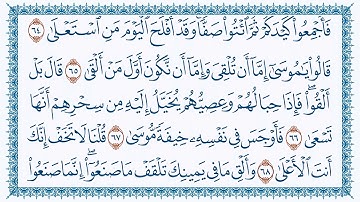 فَأَجْمِعُوا۟ كَيْدَكُمْ ثُمَّ ٱئْتُوا۟ صَفًّا ۚ وَقَدْ أَفْلَحَ ٱلْيَوْمَ مَنِ ٱسْتَعْلَىٰ ٦٤
قَالُوا۟ يَـٰمُوسَىٰٓ إِمَّآ أَن تُلْقِىَ وَإِمَّآ أَن نَّكُونَ أَوَّلَ مَنْ أَلْقَىٰ ٦٥ قَالَ بَلْ
أَلْقُوا۟ ۖ فَإِذَا حِبَالُهُمْ وَعِصِيُّهُمْ يُخَيَّلُ إِلَيْهِ مِن سِحْرِهِمْ أَنَّهَا
تَسْعَىٰ ٦٦ فَأَوْجَسَ فِى نَفْسِهِۦ خِيفَةً مُّوسَىٰ ٦٧ قُلْنَا لَا تَخَفْ إِنَّكَ
أَنتَ ٱلْأَعْلَىٰ ٦٨ وَأَلْقِ مَا فِى يَمِينِكَ تَلْقَفْ مَا صَنَعُوٓا۟ ۖ إِنَّمَا صَنَعُوا۟